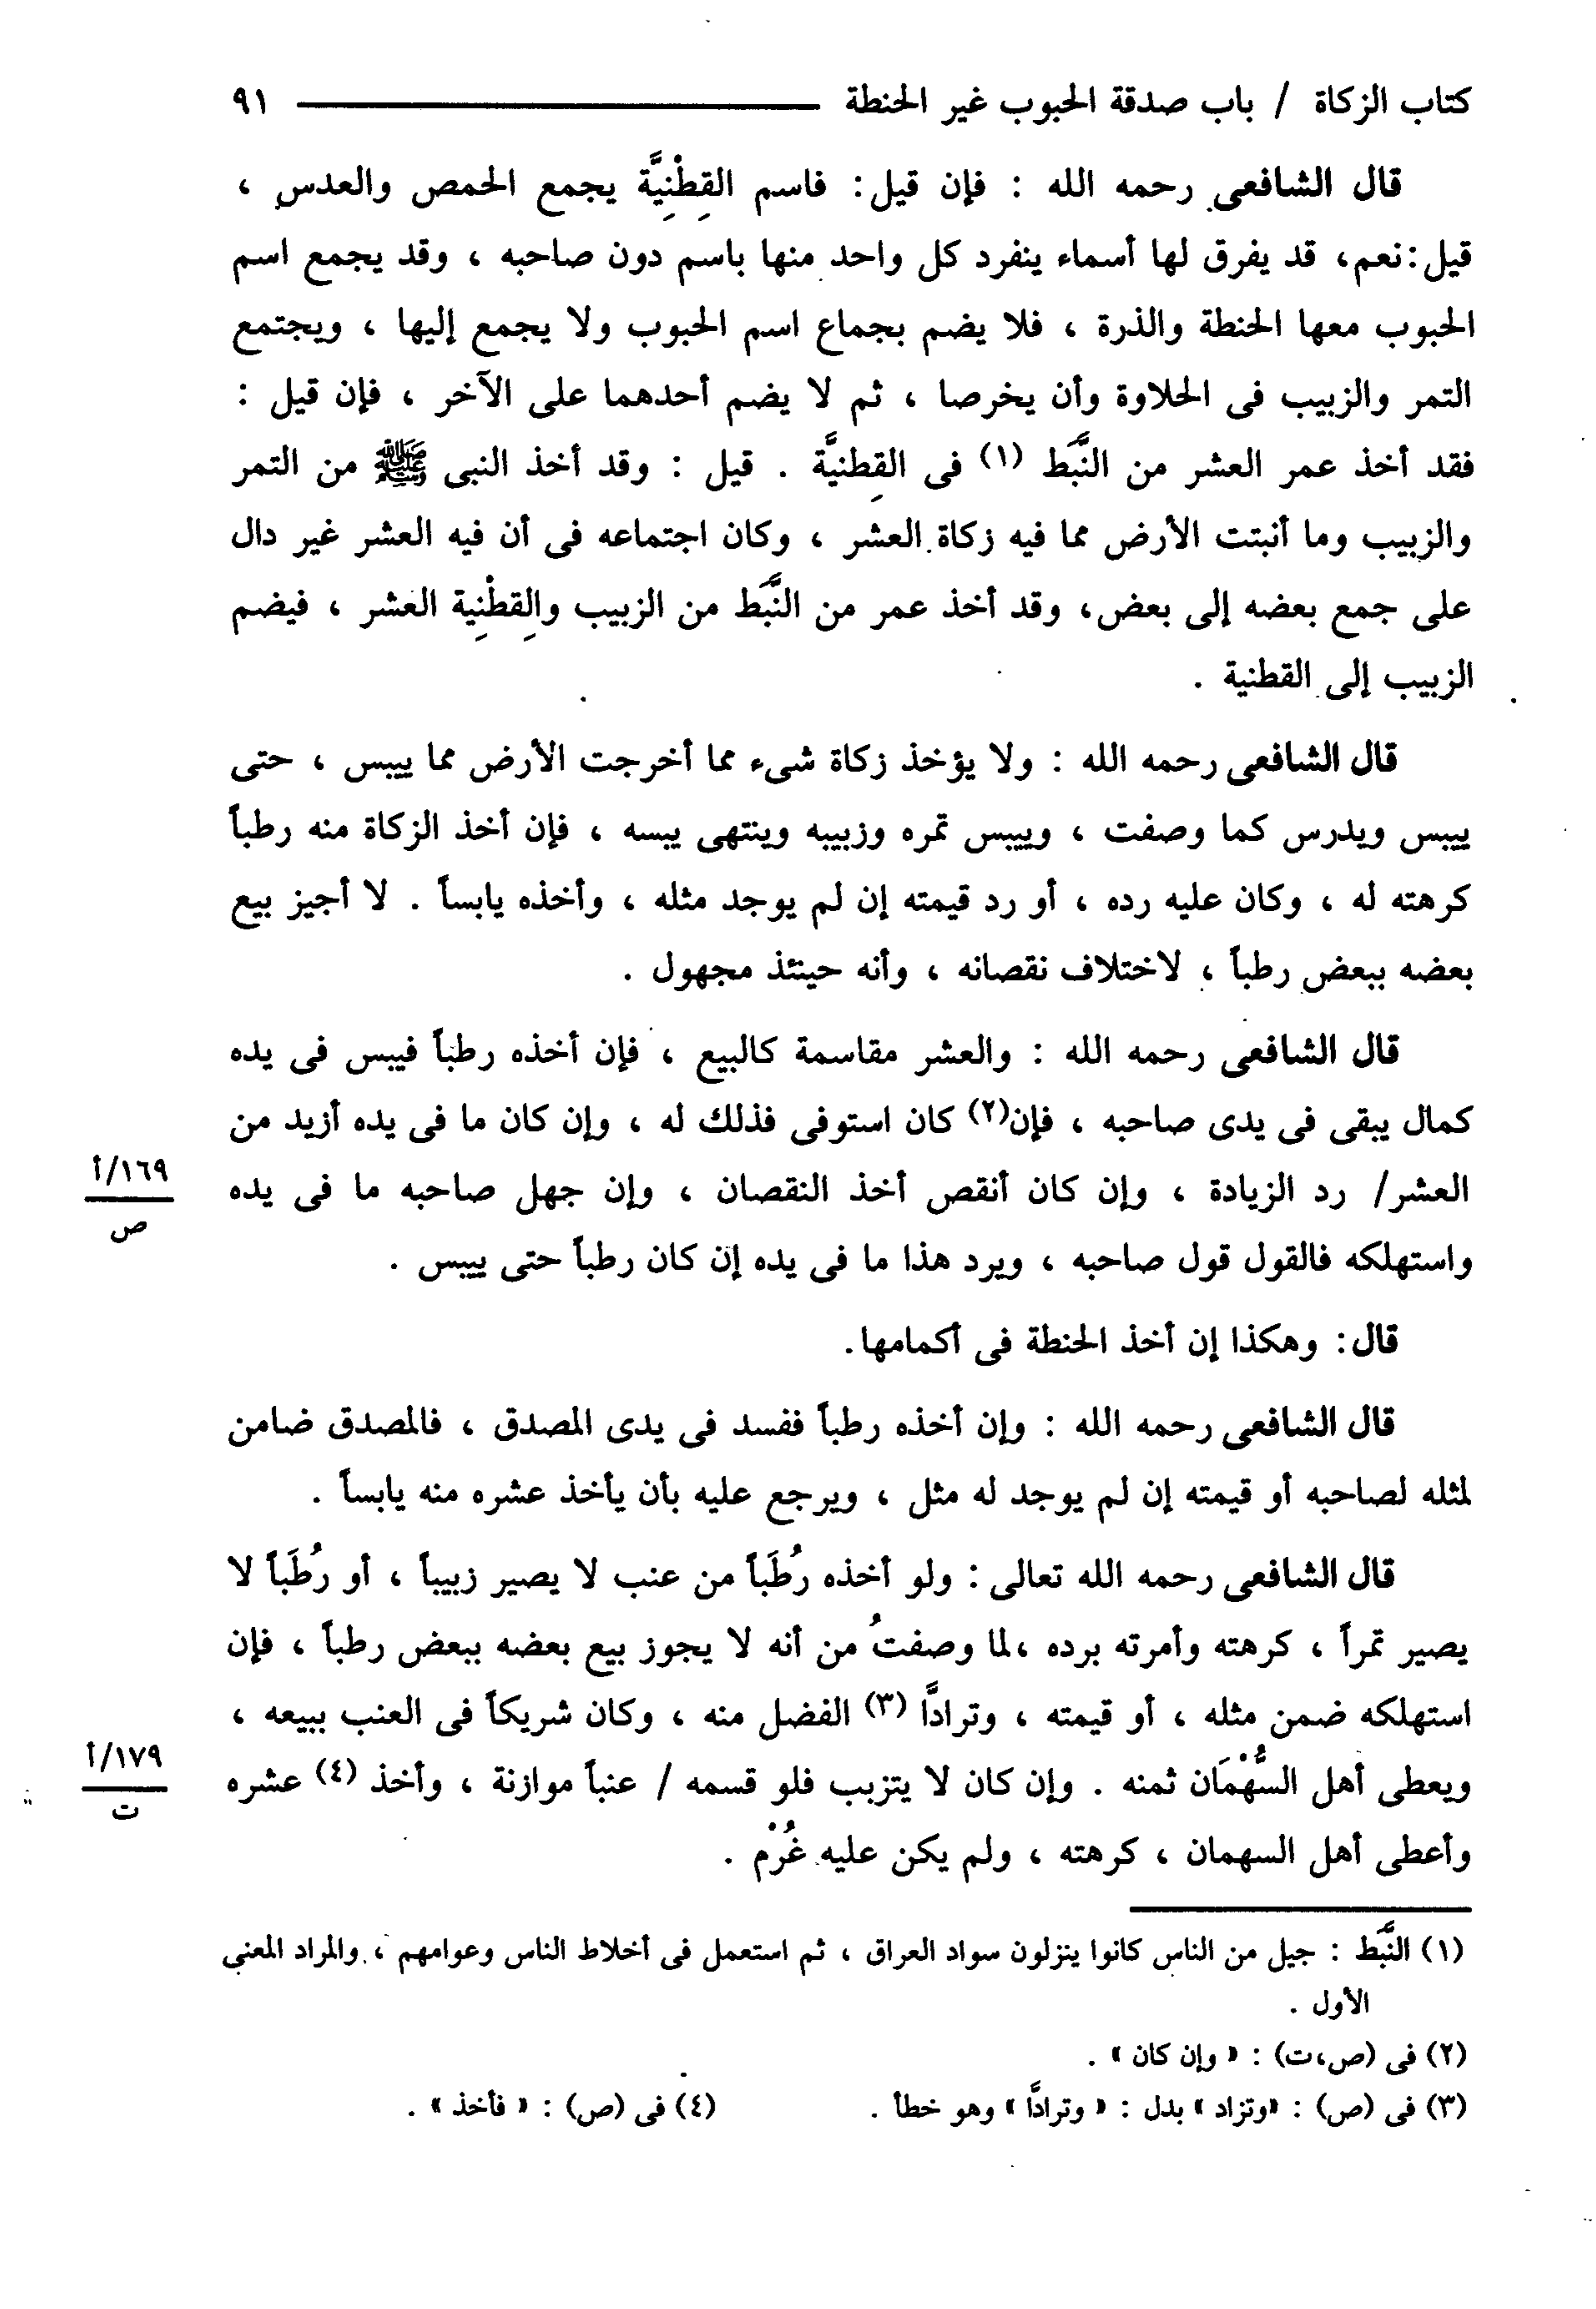 كتاب الزكاة / باب صدقة الحبوب غير الحنطة ٩١
قال الشافعى رحمه الله : فإن قيل: فاسم القِطْنِيَّة يجمع الحمص والعدس ،
قيل:نعم، قد يفرق لها أسماء ينفرد كل واحد منها باسم دون صاحبه ، وقد يجمع اسم
الحبوب معها الحنطة والذرة ، فلا يضم بجماع اسم الحبوب ولا يجمع إليها ، ويجتمع
التمر والزبيب فى الحلاوة وأن يخرصا ، ثم لا يضم أحدهما على الآخر ، فإن قيل :
فقد أخذ عمر العشر من النَّبَط (١) فى القِطنيَّة . قيل : وقد أخذ النبى ﷺ من التمر
والزبيب وما أنبتت الأرض مما فيه زكاة العشر ، وكان اجتماعه فى أن فيه العشر غير دال
على جمع بعضه إلى بعض، وقد أخذ عمر من النَّبَط من الزبيب والقِطْنِية العشر ، فيضم
الزبيب إلى القطنية .
قال الشافعى رحمه الله : ولا يؤخذ زكاة شىء مما أخرجت الأرض مما ييبس ، حتى
ييبس ويدرس كما وصفت ، وييبس تمره وزبيبه وينتهى يبسه ، فإن أخذ الزكاة منه رطباً
كرهته له ، وكان عليه رده ، أو رد قيمته إن لم يوجد مثله ، وأخذه يابساً . لا أجيز بيع
بعضه ببعض رطباً ، لاختلاف نقصانه ، وأنه حينئذ مجهول .
قال الشافعى رحمه الله : والعشر مقاسمة كالبيع ، فإن أخذه رطباً فيبس فى يده
كمال يبقى فى يدى صاحبه ، فإن(٢) كان استوفى فذلك له ، وإن كان ما فى يده أزيد من
العشر/ رد الزيادة ، وإن كان أنقص أخذ النقصان ، وإن جهل صاحبه ما فى يده
١٦٩/أ
ص
واستهلكه فالقول قول صاحبه ، ويرد هذا ما فى يده إن كان رطباً حتى ييبس .
قال: وهكذا إن أخذ الحنطة فى أكمامها.
قال الشافعى رحمه الله : وإن أخذه رطباً ففسد فى يدى المصدق ، فالمصدق ضامن
لمثله لصاحبه أو قيمته إن لم يوجد له مثل ، ويرجع عليه بأن يأخذ عشره منه يابساً .
قال الشافعى رحمه الله تعالى : ولو أخذه رُطَباً من عنب لا يصير زبيباً ، أو رُطَباً لا
يصير تمراً ، كرهته وأمرته برده ،لما وصفتُ من أنه لا يجوز بيع بعضه ببعض رطباً ، فإن
استهلكه ضمن مثله ، أو قيمته ، وترادَّا (٣) الفضل منه ، وكان شريكاً فى العنب ببيعه ،
ويعطى أهل السُّهْمَان ثمنه . وإن كان لا يتزبب فلو قسمه / عنباً موازنة ، وأخذ (٤) عشره
١٧٩/أ
ت
وأعطى أهل السهمان ، كرهته ، ولم يكن عليه غُرْم .
(١) النَّبَط : جيل من الناس كانوا ينزلون سواد العراق ، ثم استعمل فى أخلاط الناس وعوامهم ، والمراد المعنى
الأول .
(٢) فى (ص،ت) : « وإن كان » .
(٣) فى (ص) : «وتزاد » بدل : « وترادَّا » وهو خطأ . (٤) فى (ص) : « فأخذ » .